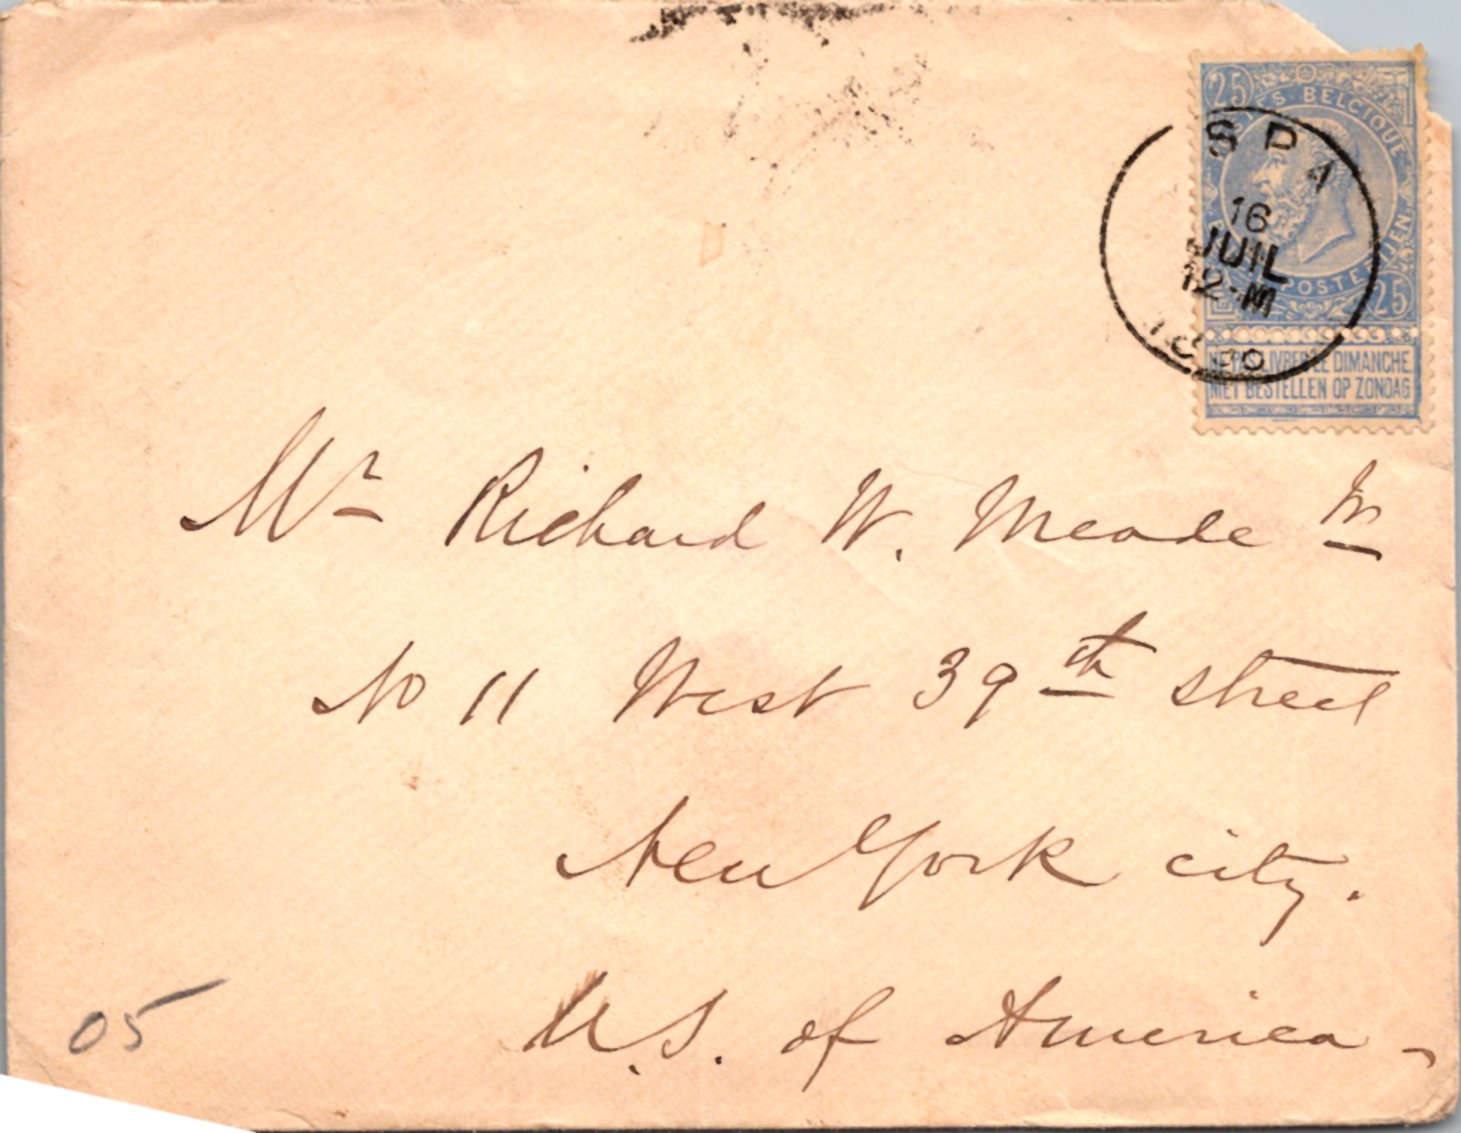 25
POSTES BELGIQUE
SPA
16
JUIL
12-M
POSTERIJEN
25
NE PAS LIVRER LE DIMANCHE
NIET BESTELLEN OP ZONDAG
Mr Richard W. Meade Jr
No 11 West 39th street
New York city.
U.S. of America -
05